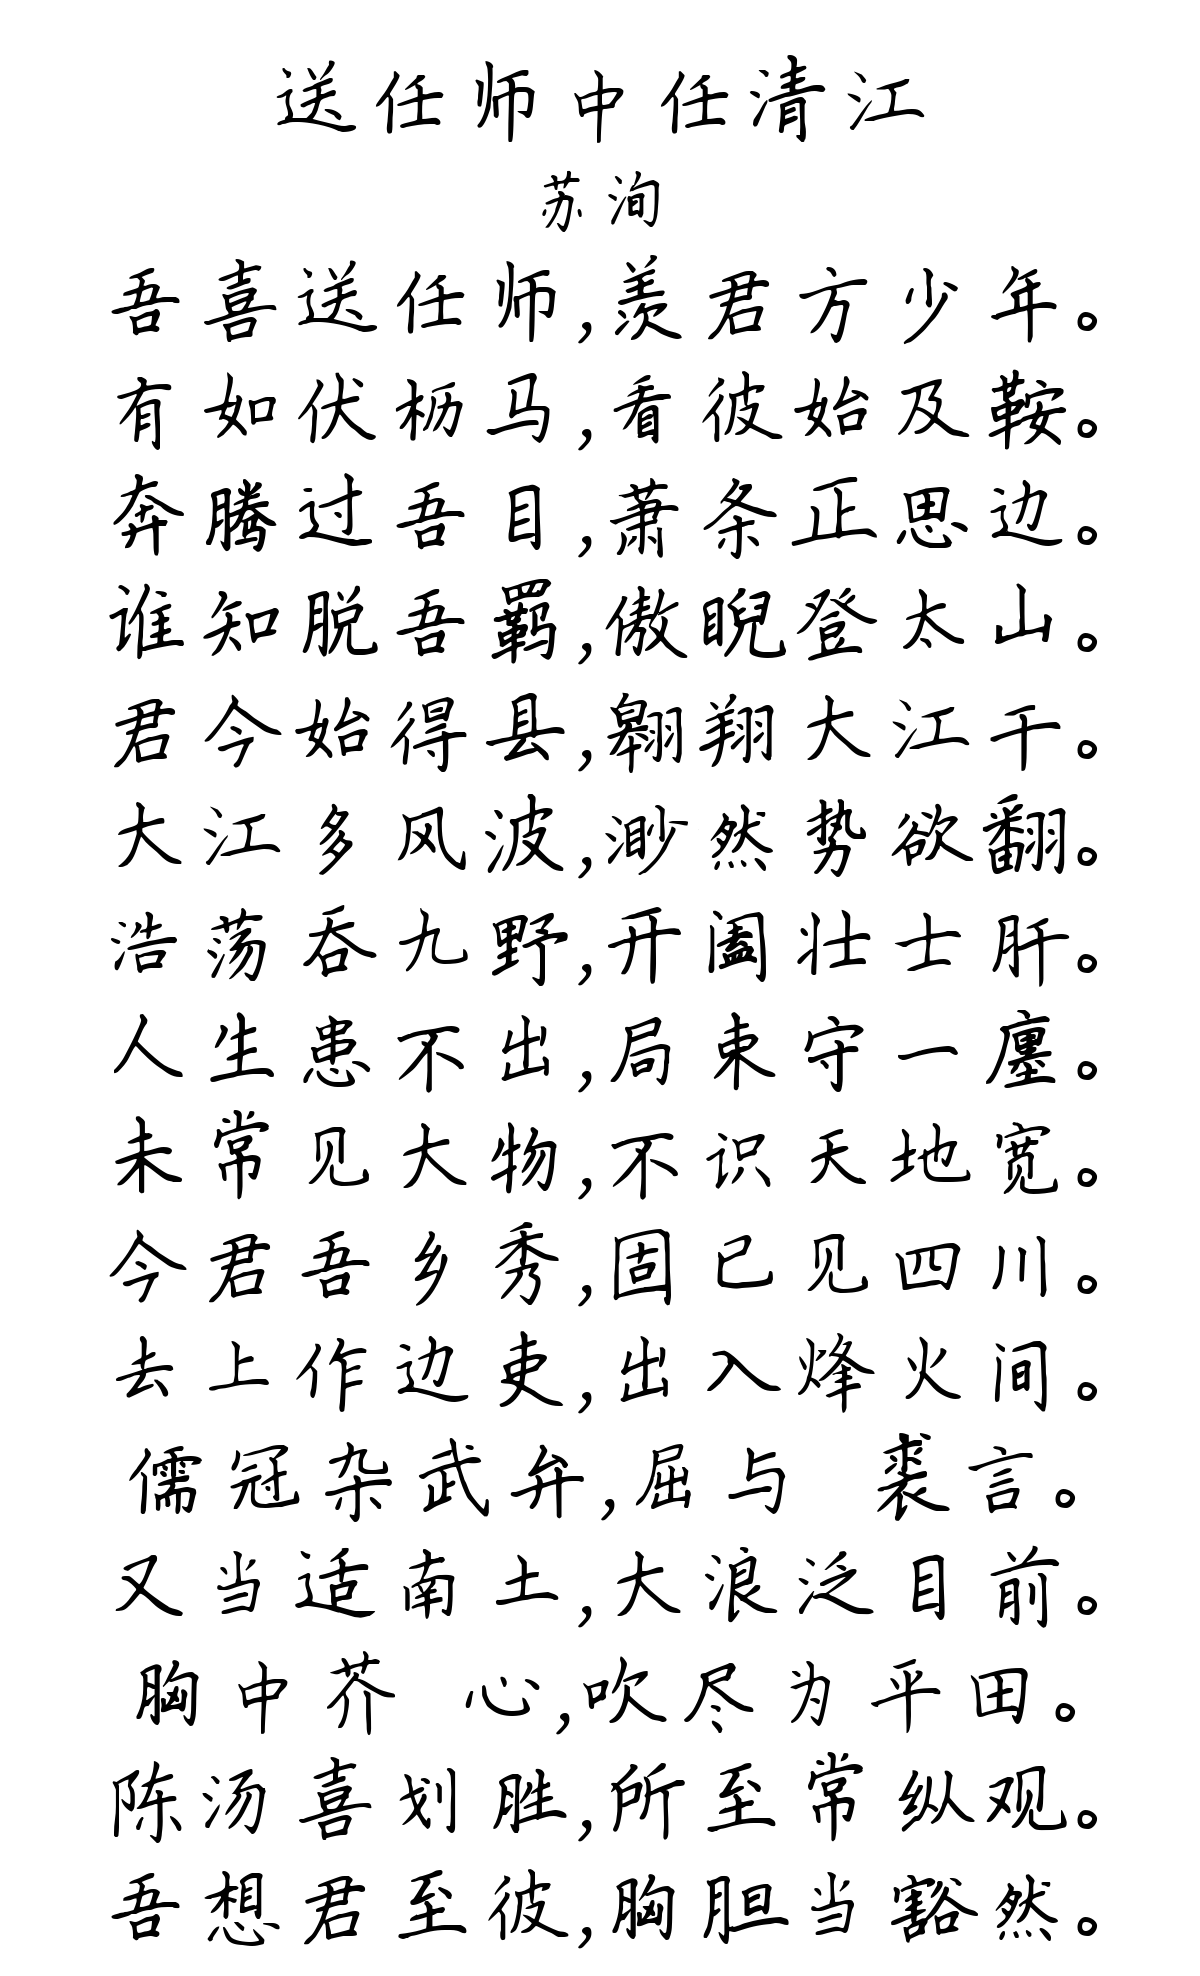 送任师中任清江
苏洵
吾喜送任师,羡君方少年。
有如伏枥马,看彼始及鞍。
奔腾过吾目,萧条正思边。
谁知脱吾羁,傲睨登太山。
君今始得县,翱翔大江干。
大江多风波,渺然势欲翻。
浩荡吞九野,开阖壮士肝。
人生患不出,局束守一廛。
未常见大物,不识天地宽。
今君吾乡秀,固已见四川。
去上作边吏,出入烽火间。
儒冠杂武弁,屈与 裘言。
又当适南土,大浪泛目前。
胸中芥 心,吹尽为平田。
陈汤喜划胜,所至常纵观。
吾想君至彼,胸胆当豁然。